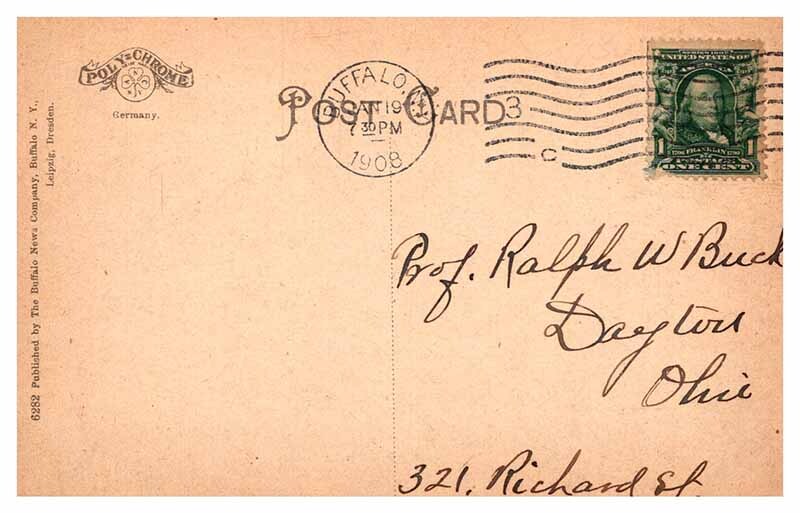 POLY-CHROME
Germany.
6282 Published by The Buffalo News Company, Buffalo N. Y.,
Leipzig, Dresden.
POST CARD
BUFFALO, N.Y.
JAN 19
7 30 PM
1908
3
C
SERIES 1902
UNITED STATES OF
AMERICA
1 1706 FRANKLIN 1790 1
POSTAGE
ONE CENT
Prof. Ralph W Buck
Dayton
Ohio
321. Richard St.